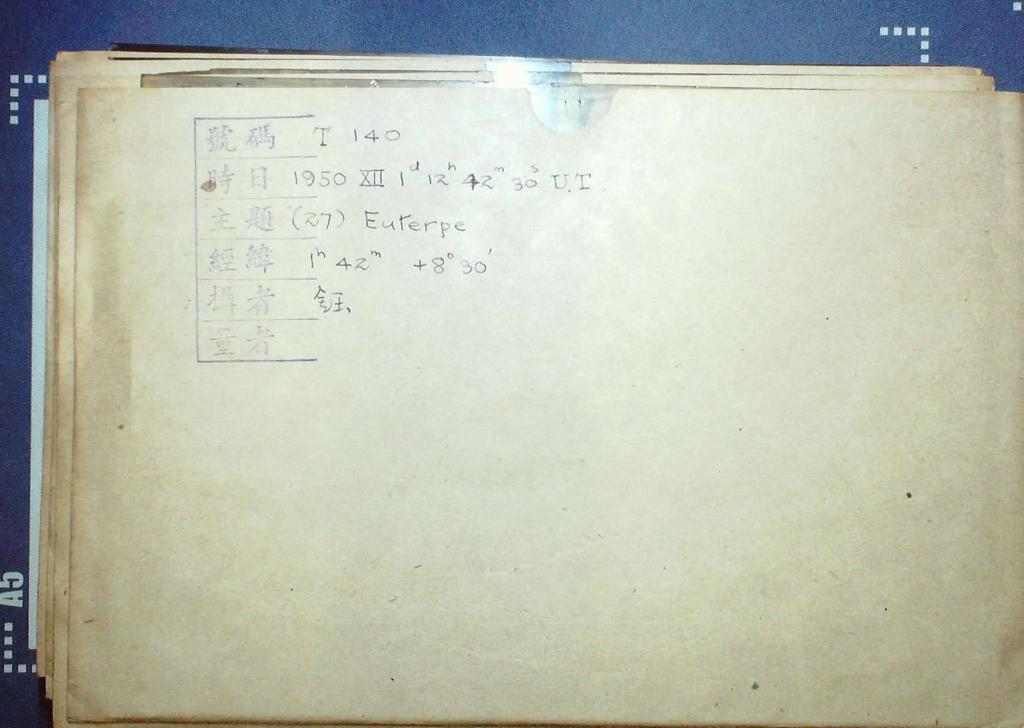 號碼 T 140
時日 1950 XII 1ᵈ 12ʰ 42ᵐ 30ˢ U.T.
主題 (27) Euterpe
經緯 1ʰ 42ᵐ +8° 30′
攝者 鈺
量者
A5